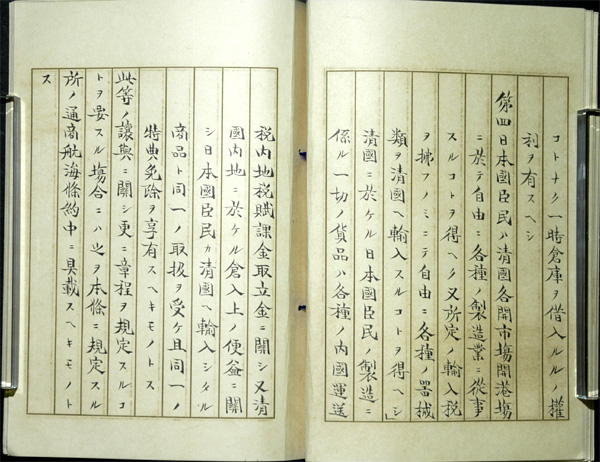 コトナク一時倉庫ヲ借入ルルノ權
利ヲ有スヘシ
第四日本國臣民ハ清國各開市塲開港塲
ニ於テ自由ニ各種ノ製造業ニ從事
スルコトヲ得ヘク又所定ノ輸入税
ヲ拂フノミニテ自由ニ各種ノ器械
類ヲ清國ヘ輸入スルコトヲ得ヘシ」
清國ニ於ケル日本國臣民ノ製造ニ
係ル一切ノ貨品ハ各種ノ内國運送
税内地税賦課金取立金ニ關シ又清
國内地ニ於ケル倉入上ノ便益ニ關
シ日本國臣民カ清國ヘ輸入シタル
商品ト同一ノ取扱ヲ受ケ且同一ノ
特典免除ヲ享有スヘキモノトス
此等ノ讓與ニ關シ更ニ章程ヲ規定スルコ
トヲ要スル塲合ニハ之ヲ本條ニ規定スル
所ノ通商航海條約中ニ具載スヘキモノト
ス